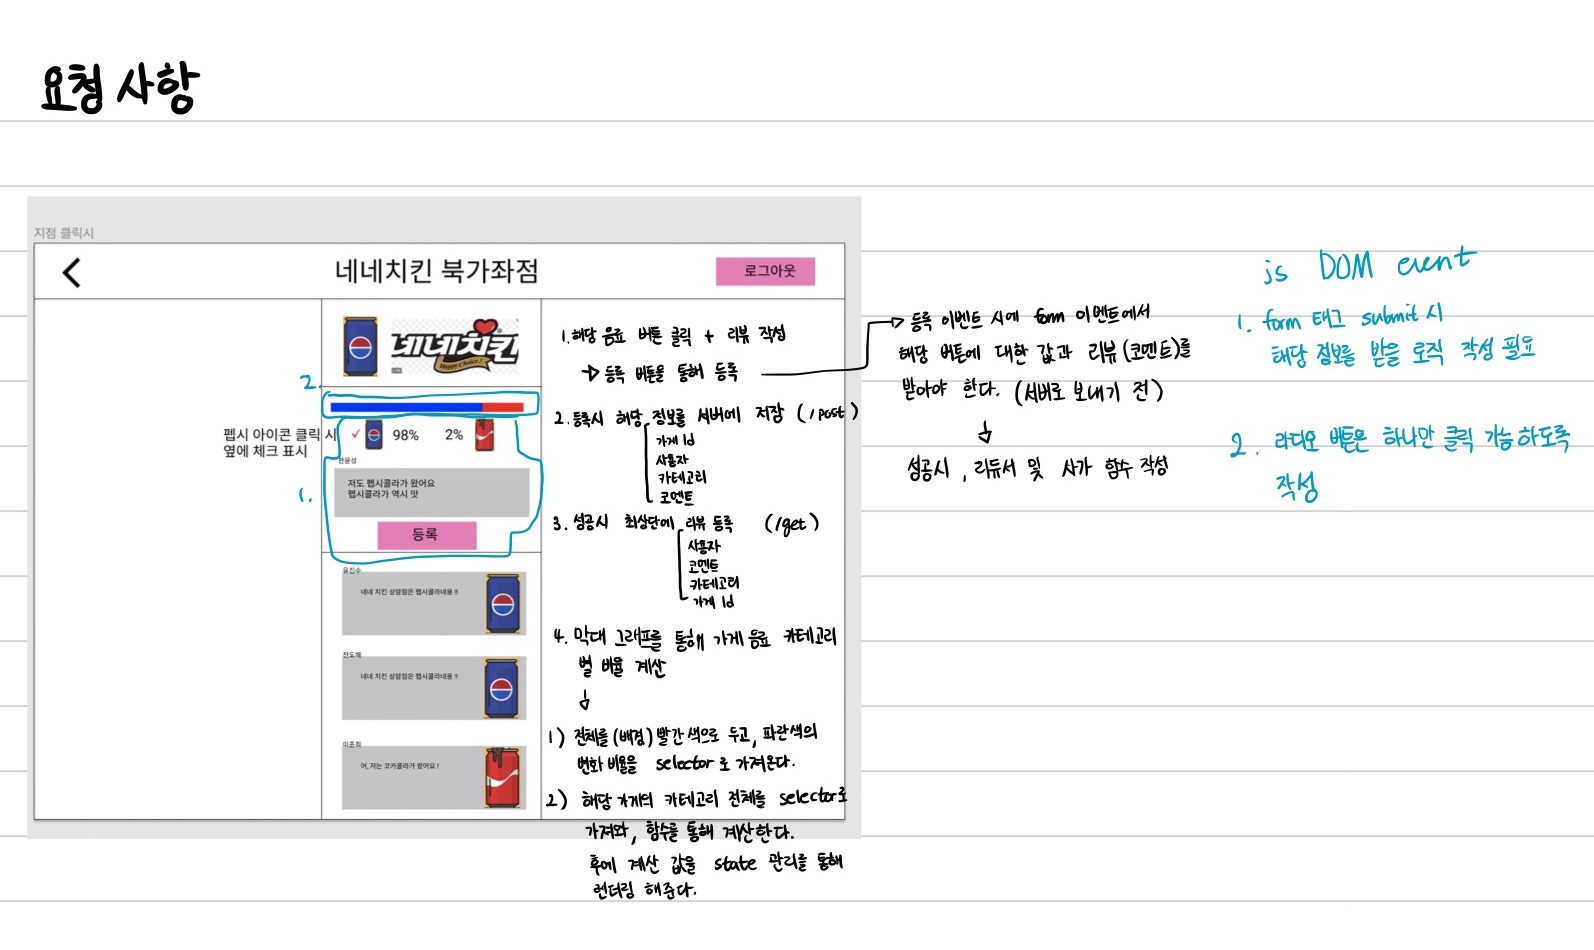 요청 사항
지점 클릭시
네네치킨 북가좌점
로그아웃
네네치킨
Happy Choice!
2.
펩시 아이콘 클릭 시
옆에 체크 표시
98%
2%
1.
저도 펩시콜라가 왔어요
펩시콜라가 역시 맛
등록
유진수
네네 치킨 상암점은 펩시콜라네용!!
전도해
네네 치킨 상암점은 펩시콜라네용!!
이준희
어, 저는 코카콜라가 왔어요!
1. 해당 음료 버튼 클릭 + 리뷰 작성
→ 등록 버튼을 통해 등록
2. 등록시 해당 정보를 서버에 저장 (/post)
가게 Id
사용자
카테고리
코멘트
3. 성공시 최상단에 리뷰 등록 (/get)
사용자
코멘트
카테고리
가게 Id
4. 막대 그래프를 통해 가게 음료 카테고리
별 비율 계산
1) 전체를 (배경) 빨간색으로 두고, 파란색의
변화 비율을 selector로 가져온다.
2) 해당 가게의 카테고리 전체를 selector로
가져와, 함수를 통해 계산한다.
후에 계산 값을 state 관리를 통해
렌더링 해준다.
등록 이벤트 시에 form 이벤트에서
해당 버튼에 대한 값과 리뷰(코멘트)를
받아야 한다. (서버로 보내기 전)
성공시, 리듀서 및 사가 함수 작성
js DOM event
1. form 태그 submit 시
해당 정보를 받을 로직 작성 필요
2. 라디오 버튼은 하나만 클릭 가능하도록
작성